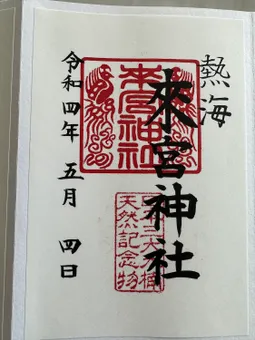 熱海
來宮神社
來宮神社
天然記念物
令和四年 五月 四日